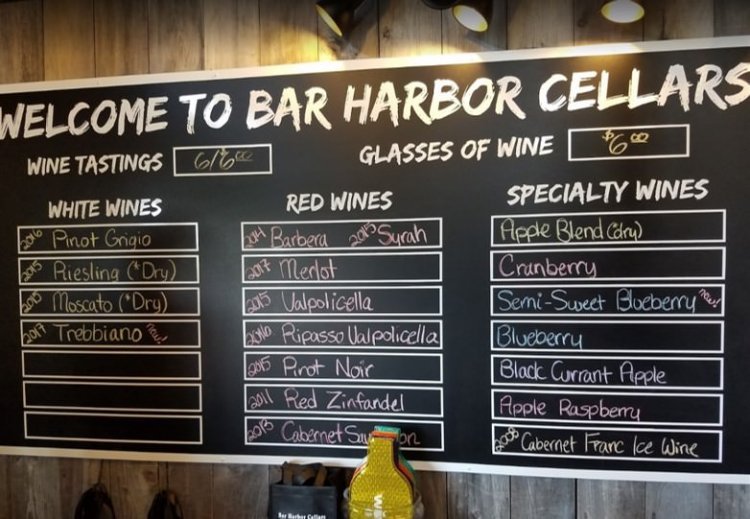 WELCOME TO BAR HARBOR CELLARS
WINE TASTINGS 6/$6.00
GLASSES OF WINE $6.00
WHITE WINES
2016 Pinot Grigio
2015 Riesling (*Dry)
2015 Moscato (*Dry)
2017 Trebbiano new!
RED WINES
2014 Barbera 2015 Syrah
2017 Merlot
2015 Valpolicella
2016 Ripasso Valpolicella
2015 Pinot Noir
2011 Red Zinfandel
2013 Cabernet
SPECIALTY WINES
Apple Blend (dry)
Cranberry
Semi-Sweet Blueberry new!
Blueberry
Black Currant Apple
Apple Raspberry
2008 Cabernet Franc Ice Wine
Bar Harbor Cellars